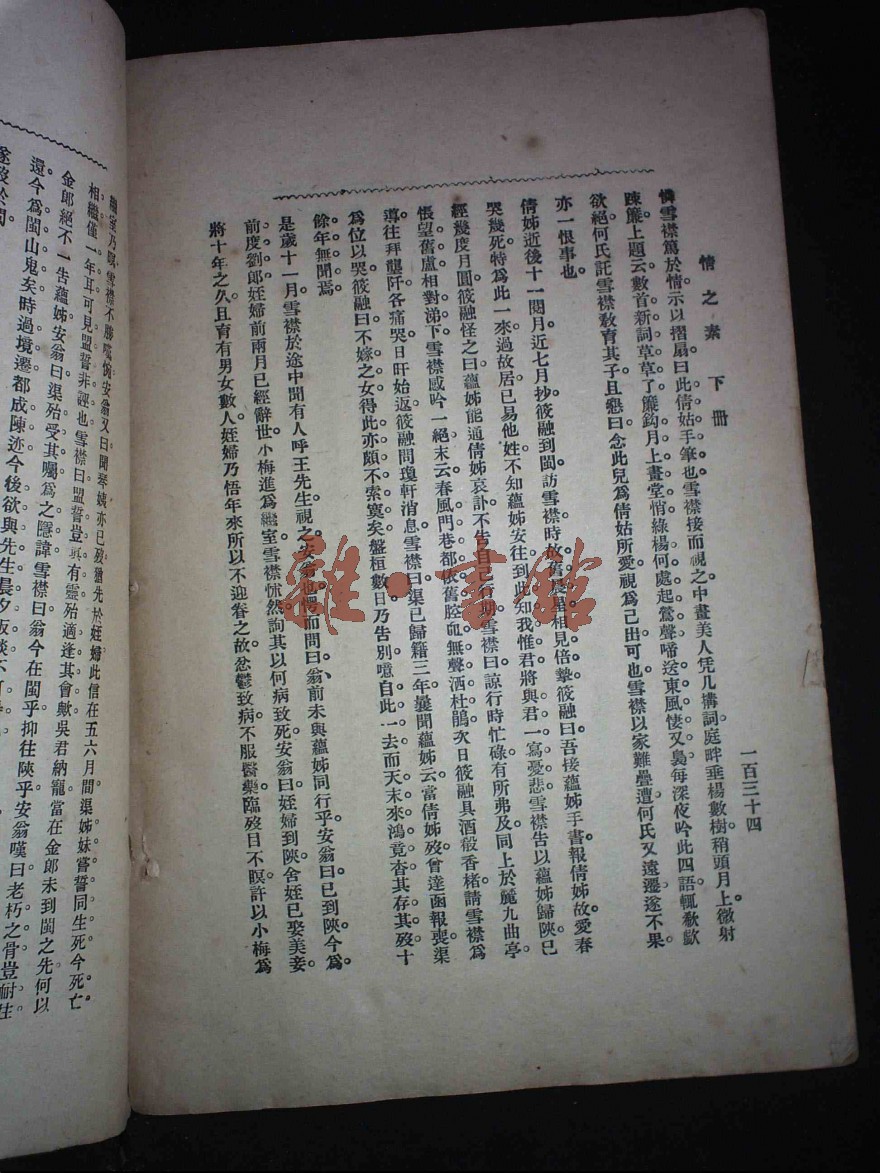 情之素 下冊
一百三十四
憐雪襟篤於情示以摺扇曰此倩姑手筆也雪襟接而視之中畫美人凭几搆詞庭畔垂楊數樹稍頭月上微射
踈簾上題云數首新詞草草了簾鈎月上畫堂悄綠楊何處起鶯聲啼送東風悽又裊每深夜吟此四語輒欷歔
欲絕何氏託雪襟敎育其子且懇曰念此兒爲倩姑所愛視爲己出可也雪襟以家難疊遭何氏又遠遷遂不果
亦一恨事也
倩姊近後十一閱月近七月抄筱融到閩訪雪襟時故舊晨星相見倍摯筱融曰吾接蘊姊手書報倩姊故愛春
哭幾死特爲此一來過故居已易他姓不知蘊姊安往到此知我惟君將與君一寫憂悲雪襟告以蘊姊歸陝已
經幾度月圓筱融怪之曰蘊姊能通倩姊哀訃不告自己行期雪襟曰諒行時忙碌有所弗及同上於麓九曲亭
悵望舊廬相對涕下雪襟感吟一絕末云春風門巷都依舊腔血無聲洒杜鵑次日筱融具酒殽香楮請雪襟爲
導往拜壟阡各痛哭日旰始返筱融問瓊軒消息雪襟曰渠已歸籍三年曩聞蘊姊云當倩姊歿曾達函報喪渠
爲位以哭筱融曰不嫁之女得此亦頗不索寞矣盤桓數日乃告別噫自此一去而天末來鴻竟杳其存其歿十
餘年無聞焉
是歲十一月雪襟於途中聞有人呼王先生視之安翁也愕而問曰翁前未與蘊姊同行乎安翁曰已到陝今爲
前度劉郎姪婦前兩月已經辭世小梅進爲繼室雪襟怵然詢其以何病致死安翁曰姪婦到陝舍姪已娶美妾
將十年之久且育有男女數人姪婦乃悟年來所以不迎眷之故忿鬱致病不服醫藥臨歿目不瞑許以小梅爲
雒·書館
乃瞑雪襟不勝嘅惋安翁又曰聞琴姨亦已歿猶先於姪婦此信在五六月間渠姊妹嘗誓同生死今死亡
相繼僅一年耳可見盟誓非誣也雪襟曰盟誓豈眞有靈殆適逢其會歟吳君納寵當在金郎未到閩之先何以
金郎絕不一告蘊姊安翁曰渠殆受其囑爲之隱諱雪襟曰翁今在閩乎抑往陝乎安翁嘆曰老朽之骨豈耐生
還今爲閩山鬼矣時過境遷都成陳迹今後欲與先生晨夕
遂歿於閩